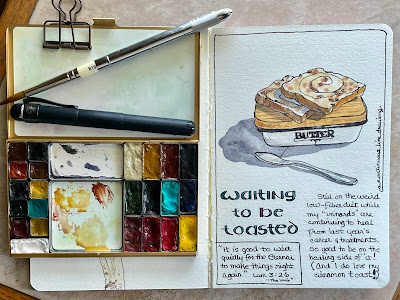 BUTTER
waiting
to be
toasted
"It is good to wait
quietly for the Eternal
to make things right
again." Lam. 3:26
- The Voice
Still on the weird
low-fiber diet while
my "innards" are
continuing to heal
from last year's
cancer & treatments.
So good to be on the
healing side of it!
(And I do love my
cinnamon toast!)